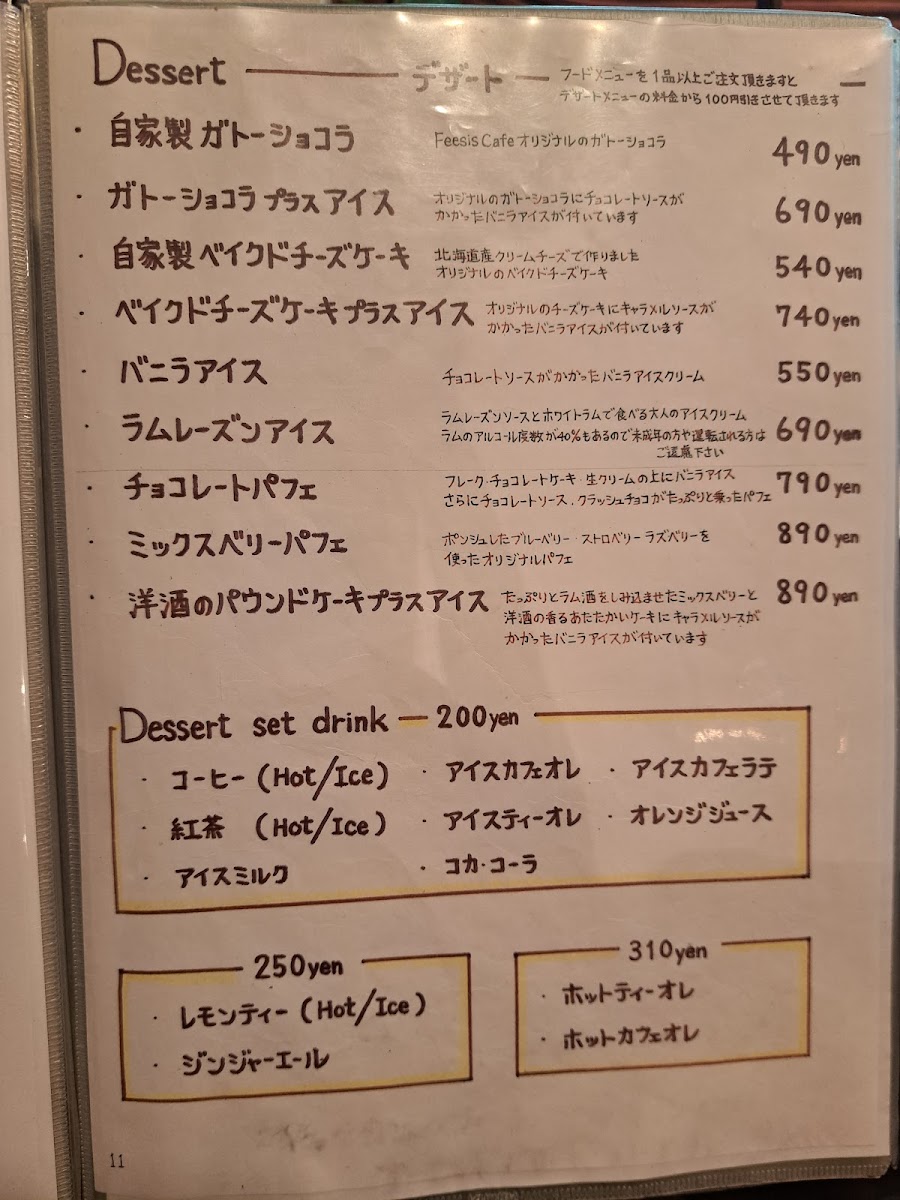 Dessert — デザート — フードメニューを1品以上ご注文頂きますと
デザートメニューの料金から100円引きさせて頂きます
・自家製ガトーショコラ Feesis Cafe オリジナルのガトーショコラ 490yen
・ガトーショコラプラスアイス オリジナルのガトーショコラにチョコレートソースが 690yen
かかったバニラアイスが付いています
・自家製ベイクドチーズケーキ 北海道産クリームチーズで作りました 540yen
オリジナルのベイクドチーズケーキ
・ベイクドチーズケーキプラスアイス オリジナルのチーズケーキにキャラメルソースが 740yen
かかったバニラアイスが付いています
・バニラアイス チョコレートソースがかかったバニラアイスクリーム 550yen
・ラムレーズンアイス ラムレーズンソースとホワイトラムで食べる大人のアイスクリーム 690yen
ラムのアルコール度数が40%もあるので未成年の方や運転される方は
ご遠慮下さい
・チョコレートパフェ フレーク・チョコレートケーキ・生クリームの上にバニラアイス 790yen
さらにチョコレートソース、クラッシュチョコがたっぷりと乗ったパフェ
・ミックスベリーパフェ ポンシュしたブルーベリー・ストロベリー ラズベリーを 890yen
使ったオリジナルパフェ
・洋酒のパウンドケーキプラスアイス たっぷりとラム酒をしみ込ませたミックスベリーと 890yen
洋酒の香るあたたかいケーキにキャラメルソースが
かかったバニラアイスが付いています
Dessert set drink — 200yen
・コーヒー (Hot/Ice) ・アイスカフェオレ ・アイスカフェラテ
・紅茶 (Hot/Ice) ・アイスティーオレ ・オレンジジュース
・アイスミルク ・コカ・コーラ
250yen
・レモンティー (Hot/Ice)
・ジンジャーエール
310yen
・ホットティーオレ
・ホットカフェオレ
11